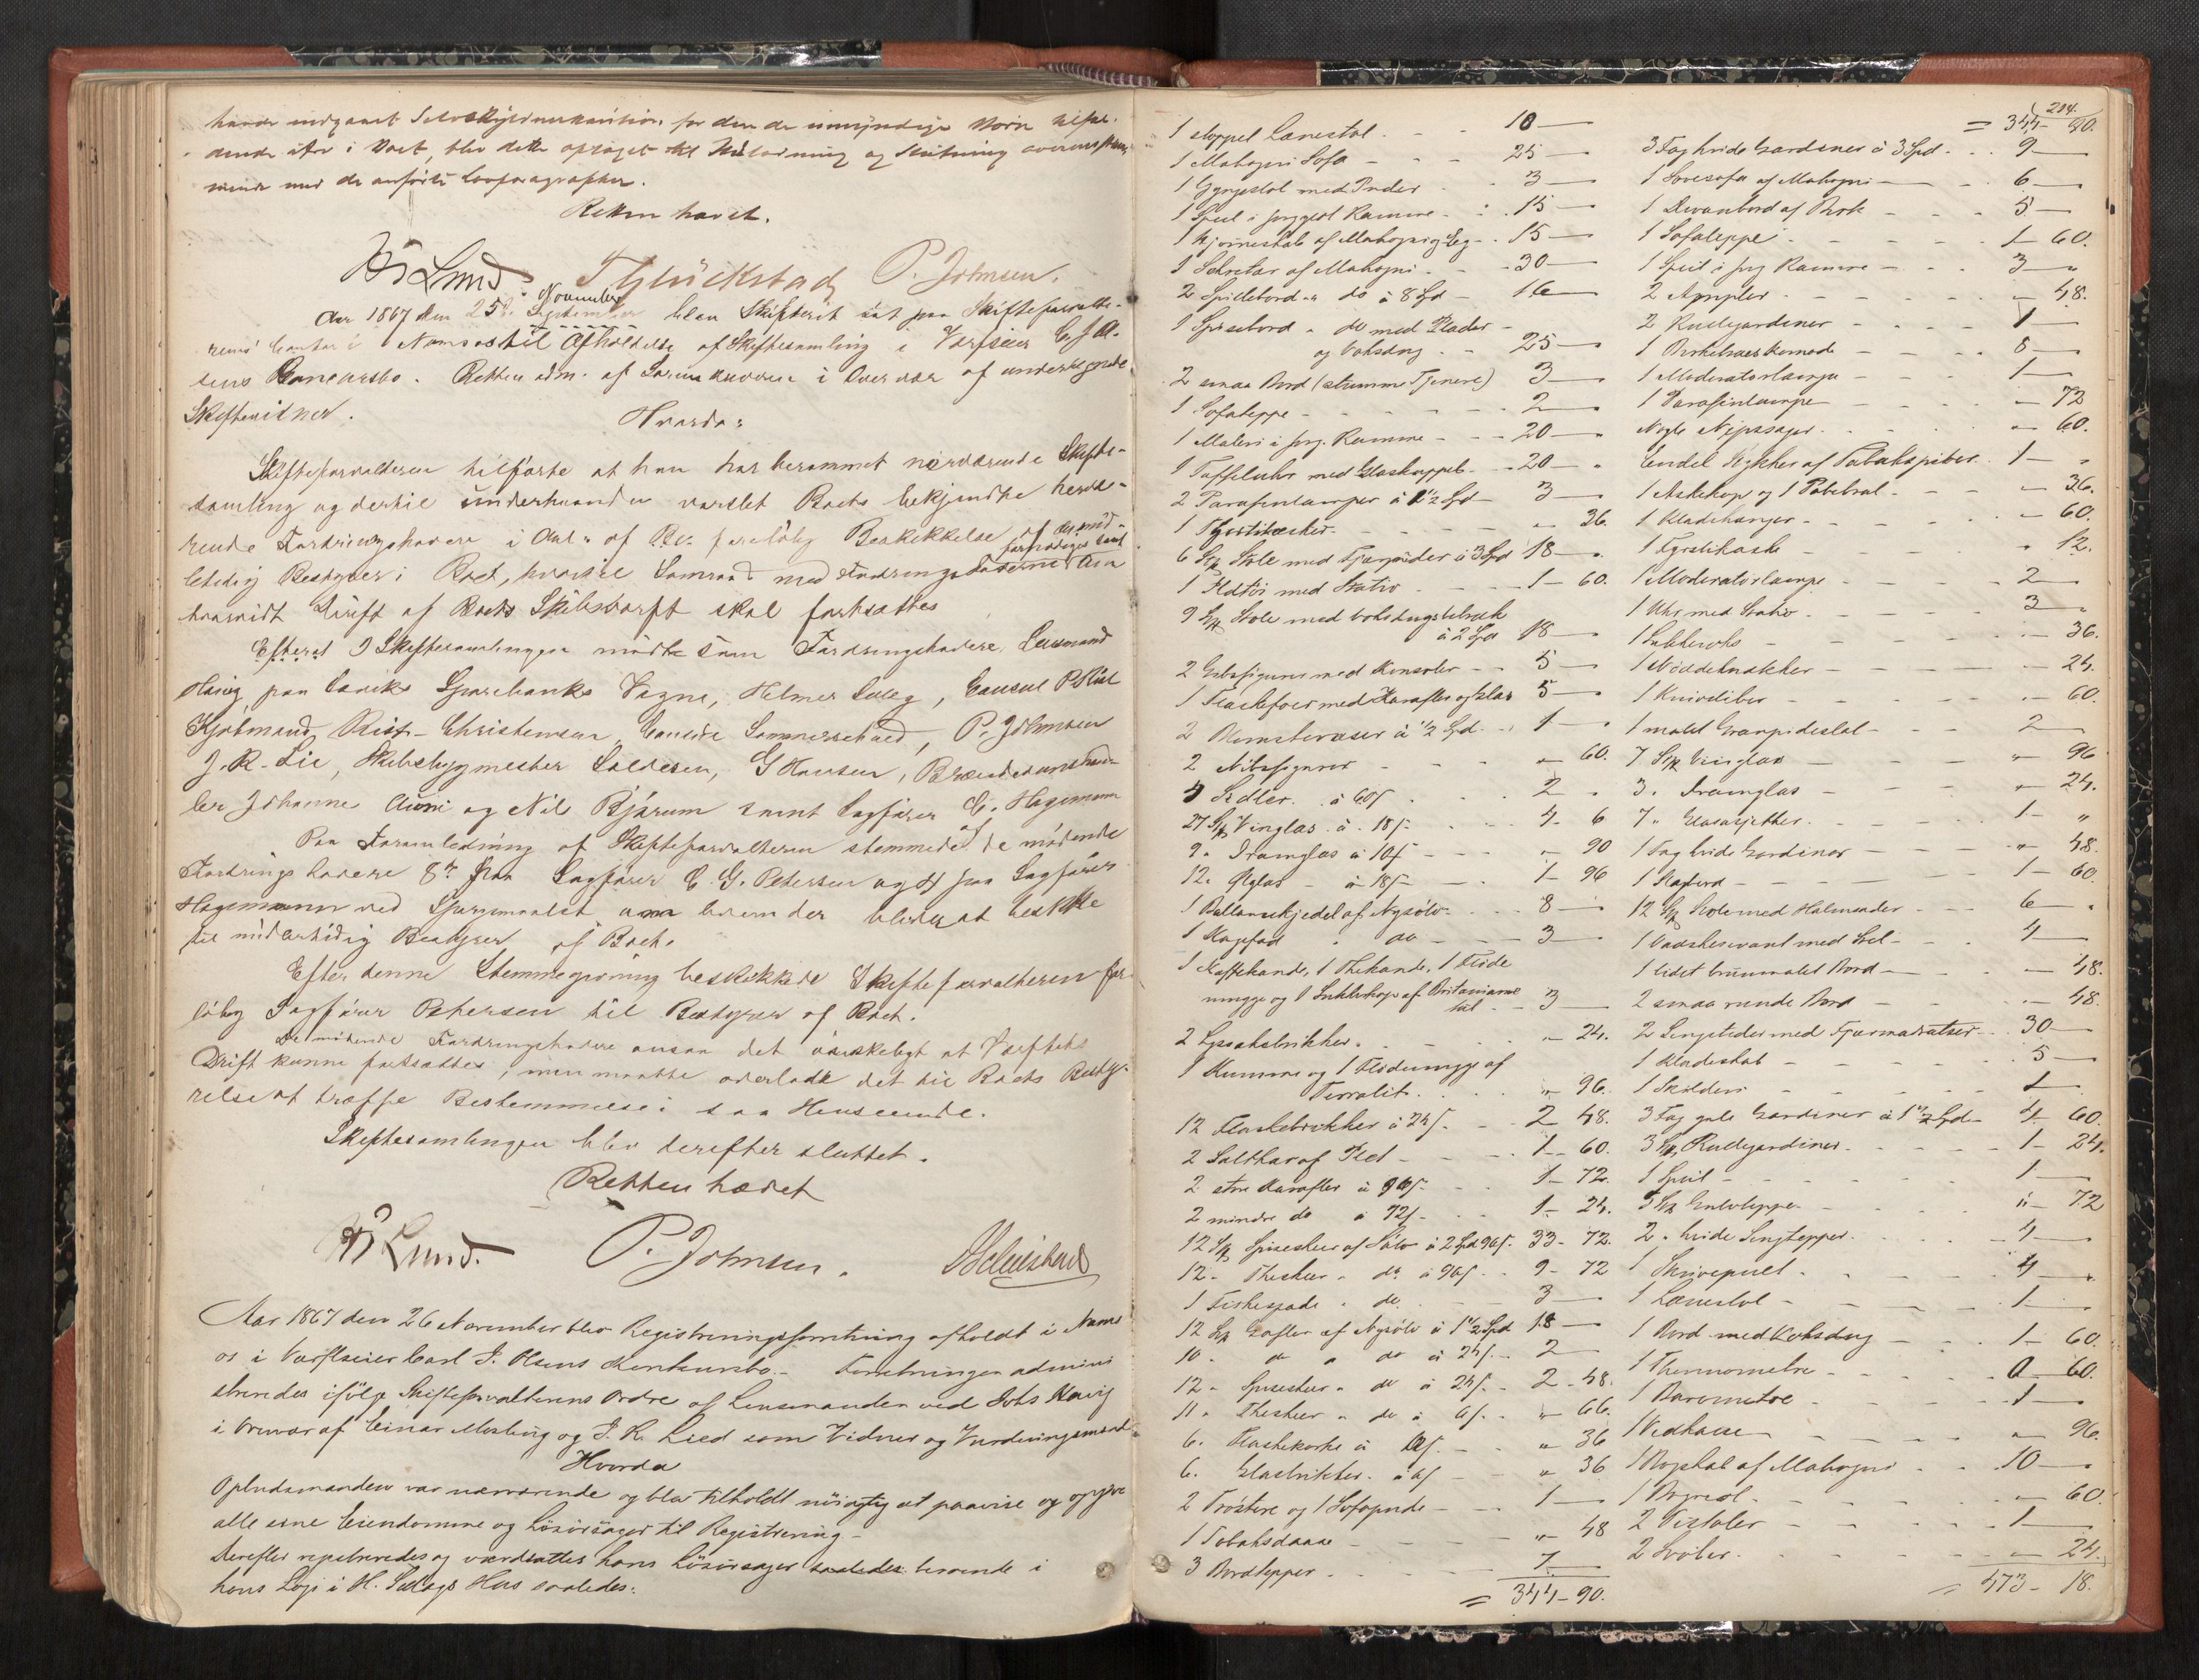 havde indgaaet Selvskyldnerkaution for den de umyndige Børn tilfal-
dende Arv i Boet, blev dette optaget til Udlodning og Slutning overensstem-
mende med de anførte Lovparagrapher.
Retten hævet.
Lund T Glückstad P. Johnsen.
Aar 1867 den 25de November blev Skifteret sat paa Skifteforvalte-
rens Contor i Namsos til Afholdelse af Skiftesamling i Værfseier C. J. Ol-
sens Concursbo. Retten adm. af Sorenskriveren i Overvær af undertegnede
Skiftevidner.
Hvorda:
Skifteforvalteren tilførte at han har berammet nærværende Skifte-
samling og dertil underhaanden varslet Boets bekjendte hervæ-
rende Fordringshavere i Anl. af Bl. foreløbig Beskikkelse af en mid-
letidig Bestyrer i Boet, hvortil Samraad med Fordringshaverne om
hvorvidt Drift af Boets Skibsværft skal fortsættes
Efterat I Skiftesamlingen mødte som Fordringshavere Lensmand
Havig paa Laviks Sparebanks Vegne, Helmer Salag, Consul P Riis
Kjøbmand Christensen Consul Sommerschield, P. Johnsen
J. R. Lie, Skibsbygmester Salvesen, G Hansen, Brændevinshand-
ler Johanne Auni og Nils Bjørum samt Sagfører C. Hagemann
Paa Foranledning af Skifteforvalteren stemmede af de mødende
Fordringshavere 8te paa Sagfører C. G. Petersen og 4 paa Sagfører
Hagemann ved Spørgsmaalet om hvem der bliver at beskikke
til midlertidig Bestyrer af Boet.
Efter denne Stemmegivning beskikkede Skifteforvalteren for-
løbig Sagfører Petersen til Bestyrer af Boet.
De mødende Fordringshavere ansaa det ønskeligt at Værftets
Drift kunne fortsættes, men maatte overlade det til Boets Besty-
relse at træffe Bestemmelse i saa Henseende.
Skiftesamlingen blev derefter sluttet.
Retten hævet
Lund. P. Johnsen.
Aar 1867 den 26 November blev Registreringsforretning afholdt i Nams
os i Værftseier Carl J. Olsens Konkursbo. Forretningen admini
streredes ifølge Skifteforvalterens Ordre af Lensmanden ved Johs Havig
i Overvær af Einar Mosling og J. R. Lied som Vidner og Vurderingsmænd
Hvorda
Opbudsmanden var nærværende og blev tilholdt nøiagtig at paavise og opgive
alle sine Eiendomme og Løsøresager til Registrering
Derefter registreredes og værdsattes hans Løsøresager beroende i
hans Logi i H. Salags Hus saaledes:
1 stoppet Lænestol - - 10 —
1 Mahogni Sofa - - 25 —
1 Gyngestol med Puder - 3 —
1 Speil i forgyldt Ramme - . 15 —
1 Hjørneskab af Mahogni og Eg - . 15 —
1 Sekretær af Mahogni - - 30 —
2 Spillebord " do à 8 Spd - 16 —
1 Spisebord " do med Plader -
og Voksdug - - 25 —
2 smaa Bord (stumme Tjenere) 3 —
1 Sofateppe - - - 2 —
1 Maleri i forg. Ramme - - - 20 —
1 Taffeluhr med Glaskuppel - - 20 — "
2 Parafinlamper à 1 1/2 Spd - 3 —
1 Fyrstikæsker - - - " 36.
6 Stk Stole med Fjærpuder à 3 Spd 18 —
1 Ildtøi med Stativ - - 1 - 60.
9 Stk Stole med Voksdugsbetræk
à 2 Spd 18 —
2 Gibsfigurer med Konsoler - - 5 —
1 Flaskefoer med Karafler og Glas 5 —
2 Blomstervaser à 1/2 Spd - 1 —
2 Nibsfigurer - - - " 60.
4 Sedler à 60 s - - - 2 "
27 Stk Vinglas à 18 s - - - 4 - 6
9 " Dramglas à 10 s - - " 90
12 " Ølglas - à 18 s - - 1 - 96
1 Ballanskjedel af Nysølv - - - 8 —
1 Kagefad " do - - 3 —
1 Kaffekande, 1 Thekande, 1 Fløde
mugge og 1 Sukkerkop af Britaniame
tal - 3 —
2 Lysestikker - - - " 24.
1 Kumme og 1 Flødemugge af
Terralit - - - " 96.
12 Flaskebrikker à 24 s - - 2 - 48.
2 Saltkar af Plet - - - 1 - 60.
2 store Karafler à 90 s - - 1 - 72.
2 mindre do à 72 s - - 1 - 24.
12 Stk Spiseskeer af Sølv à 2 Spd 96 s - 33 - 72.
12 " Theskeer " do à 90 s - 9 - 72
1 Fiskespade " do - - 3 —
12 Stk Gafler af Nysølv à 1 1/2 Spd 18 —
10 " do " do à 24 s - 2 —
12 " Spiseskeer " do à 24 s - 2 - 48.
11 " Theskeer " do à 6 s - " 66.
6 " Flaskekorke à - " 36
6 " Glasbrikker à 6 s - " 36
2 Trøstere og 1 Sofapude - - 1 —
1 Tobaksdaase - - - " 48
3 Bordtepper - - - 7 —
= 344 - 90.
214.
= 344 - 90.
3 Fag hvide Gardiner à 3 Spd - . 9 —
1 Sovesofa af Mahogni - - 6 —
1 Divanbord af Birk - - - 5 —
1 Sofateppe - - - - 1 - 60.
1 Speil i forg Ramme - - - 3 — "
2 Ampler - - - - " 48.
2 Rullegardiner - - - 1 —
1 Birketræes Komode - - - 8 —
1 Moderatorlampe - - - 1 —
1 Parafinlampe - - - " 72
Nogle Nipssager - - - " 60.
Endel Stykker af Tobakspiber - 1 — "
1 Askekop og 1 Pibebræt - - - " 36.
1 Klædehænger - - - " 60.
1 Fyrstikaske - - - " 12.
1 Moderatorlampe - - - 2 —
1 Uhr med Stativ - - - 3 —
1 Sukkerøks - - - " 36.
1 Nøddeknækker - - - " 24.
1 Knivsliber - - - " 60.
1 malet Granpidestal - - - 2 —
7 Stk Vinglas - - - " 96
3 " Dramglas - - - " 24.
7 " Glasasjetter - - - 1 - "
1 Fag hvide Gardiner - - - " 48.
1 Slagbord - - - - 1 - 60.
12 Stk Stole med Halmsæder - - 6 — "
1 Vadskeservant med Stel - - 4 —
1 lidet brunmalet Bord - - " 48.
2 smaa runde Bord - - - " 48.
2 Sengesteder med Fjærmadratser - - 30 —
1 Klædeskab - - - - 5 —
1 Skilderi - - - - 1
3 Fag gule Gardiner à 1 1/2 Spd - 4 60.
3 Stk Rullegardiner - - - 1 - 24.
1 Speil - - - - 1 —
3 Stk Gulvtepper - - - " 72
2 " hvide Sengtepper - - - 4 —
1 Skrivepult - - - 4 —
1 Lænestol - - - - 1 —
1 Bord med Voksdug - - 1 - 60.
1 Thermometre - - - 0 - 60.
1 Barometre - - - 1 —
1 Vedkasse - - - - " 96.
1 Bogskab af Mahogni - - 10 —
1 Bogreol - - - - " 60.
2 Pistoler - - - - 1 —
2 Svøber - - - - " 24.
= 473 - 18.